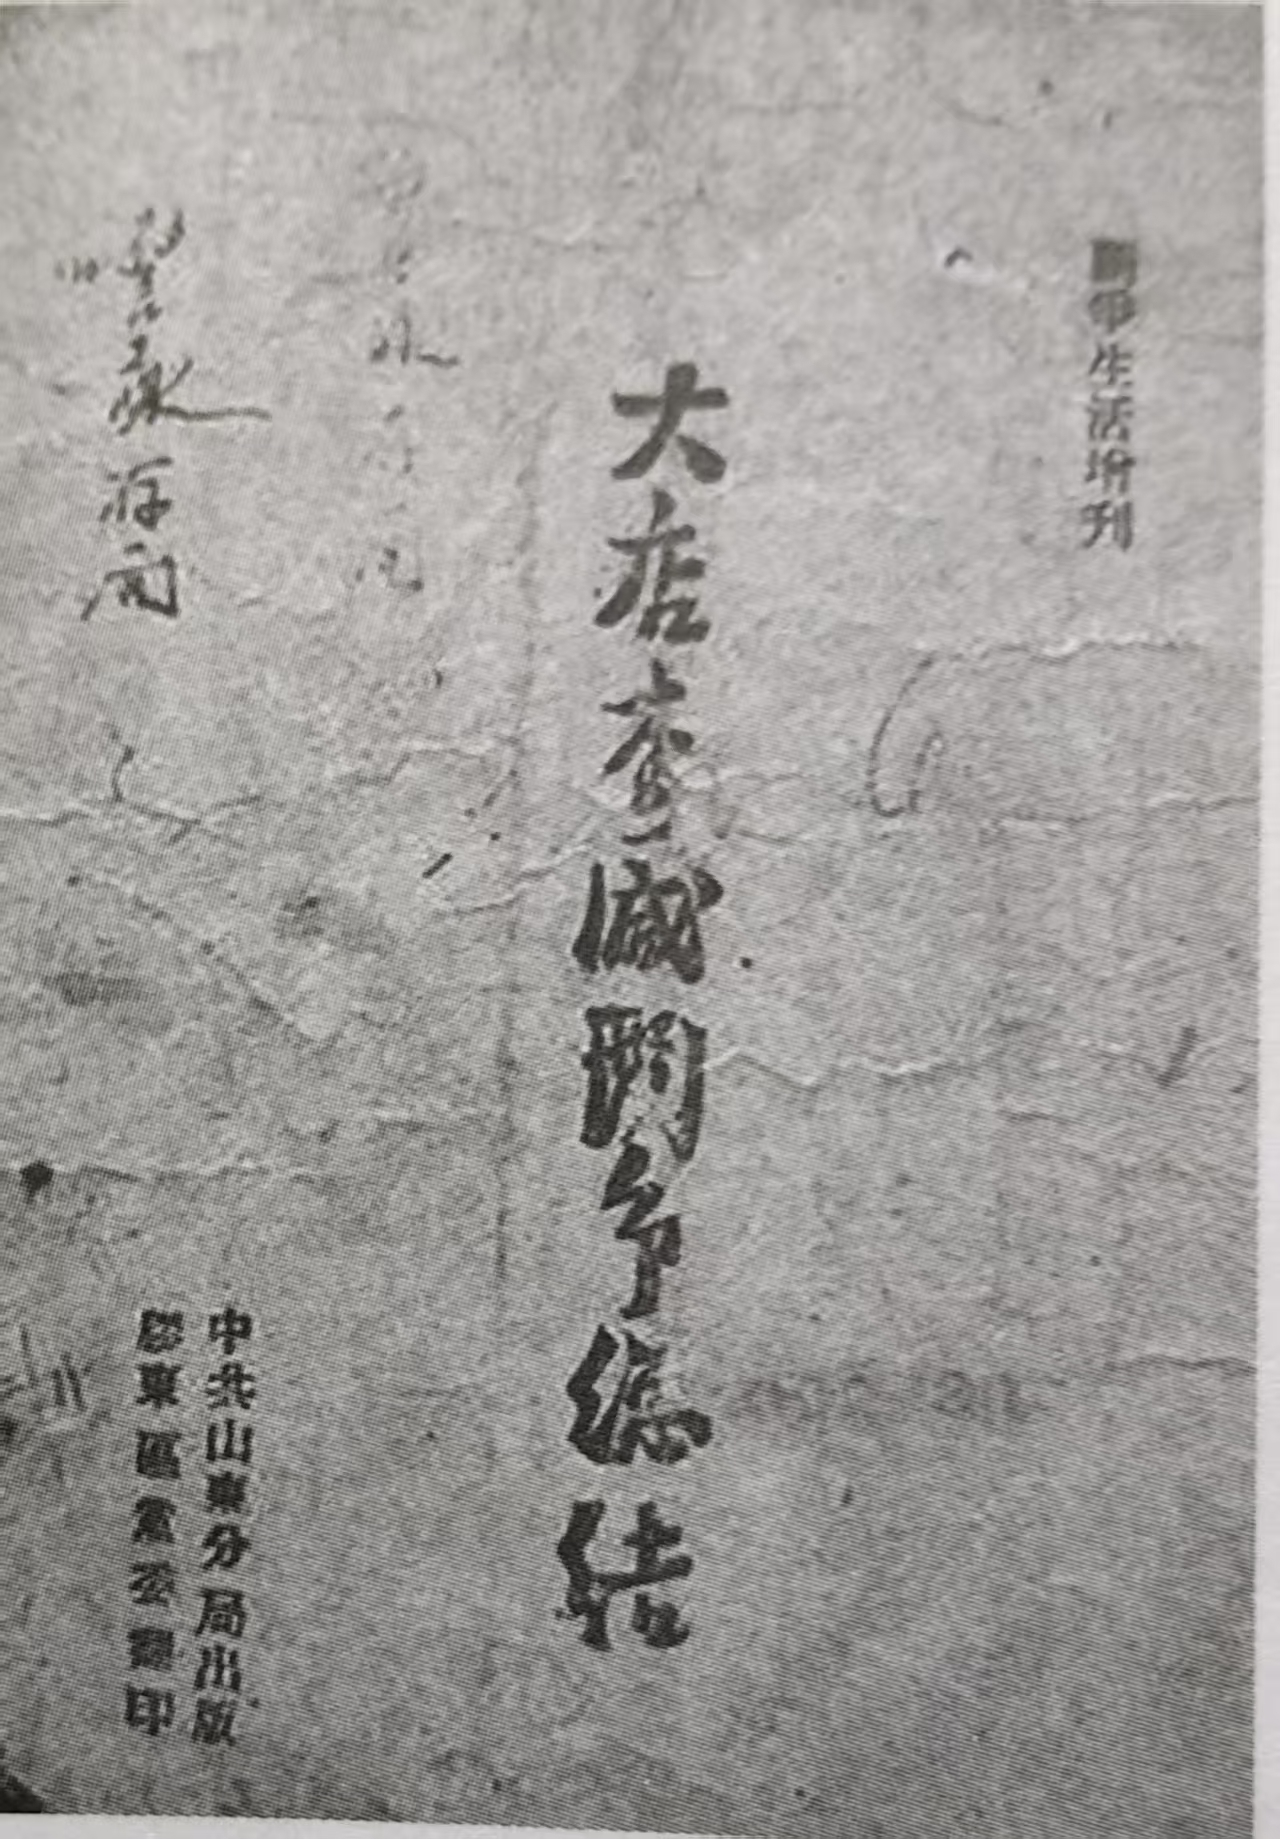 鬥爭生活增刊
大店查减鬥争總结
中共山東分局出版
膠東區黨委翻印